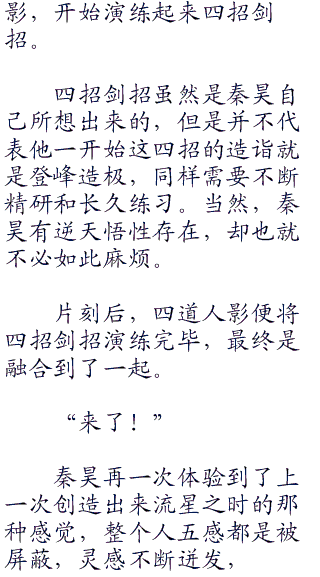 影，开始演练起来四招剑
招。
四招剑招虽然是秦昊自
己所想出来的，但是并不代
表他一开始这四招的造诣就
是登峰造极，同样需要不断
精研和长久练习。当然，秦
昊有逆天悟性存在，却也就
不必如此麻烦。
片刻后，四道人影便将
四招剑招演练完毕，最终是
融合到了一起。
“来了！”
秦昊再一次体验到了上
一次创造出来流星之时的那
种感觉，整个人五感都是被
屏蔽，灵感不断迸发，